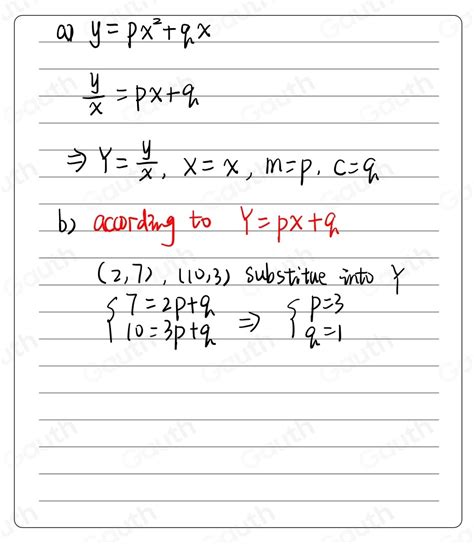 a) y = px² + qx
y/x = px + q
⇒ Y = y/x, X = x, m = p, c = q
b) according to Y = px + q
(2,7), (10,3) substitue into Y
{ 7 = 2p + q ⇒ { p = 3
{ 10 = 3p + q { q = 1